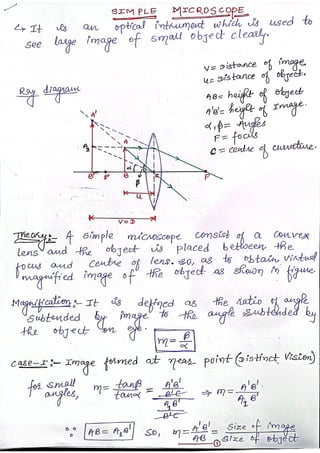 SIMPLE MICROSCOPE
↳ It is an optical intrument which is used to
see large image of small object clealy.
V = Distance of image.
u = Distance of object.
Ray diagram
AB = height of object
A'B' = height of Image.
α, β = Angles
F = focus
C = centre of curvature.
A'
A₁ A
α β C
B' F' B F
u
V = D
Theory:- A simple microscope consist of a convex
lens and the object is placed between the
focus and centre of lens. so, as to obtain virtual
magnified image of the object as shown in figure.
Magnification:- It is defined as the ratio of angle
subtended by image to the angle subtended by
the object on eye.
m = β/α
case-I:- Image formed at near point (Distinct Vision)
for small angles, m = tanβ/tanα = (A'B'/B'C)/(A₁B'/B'C) ⇒ m = A'B'/A₁B'
∵ AB = A₁B' So, m = A'B'/AB = Size of image/Size of object
1